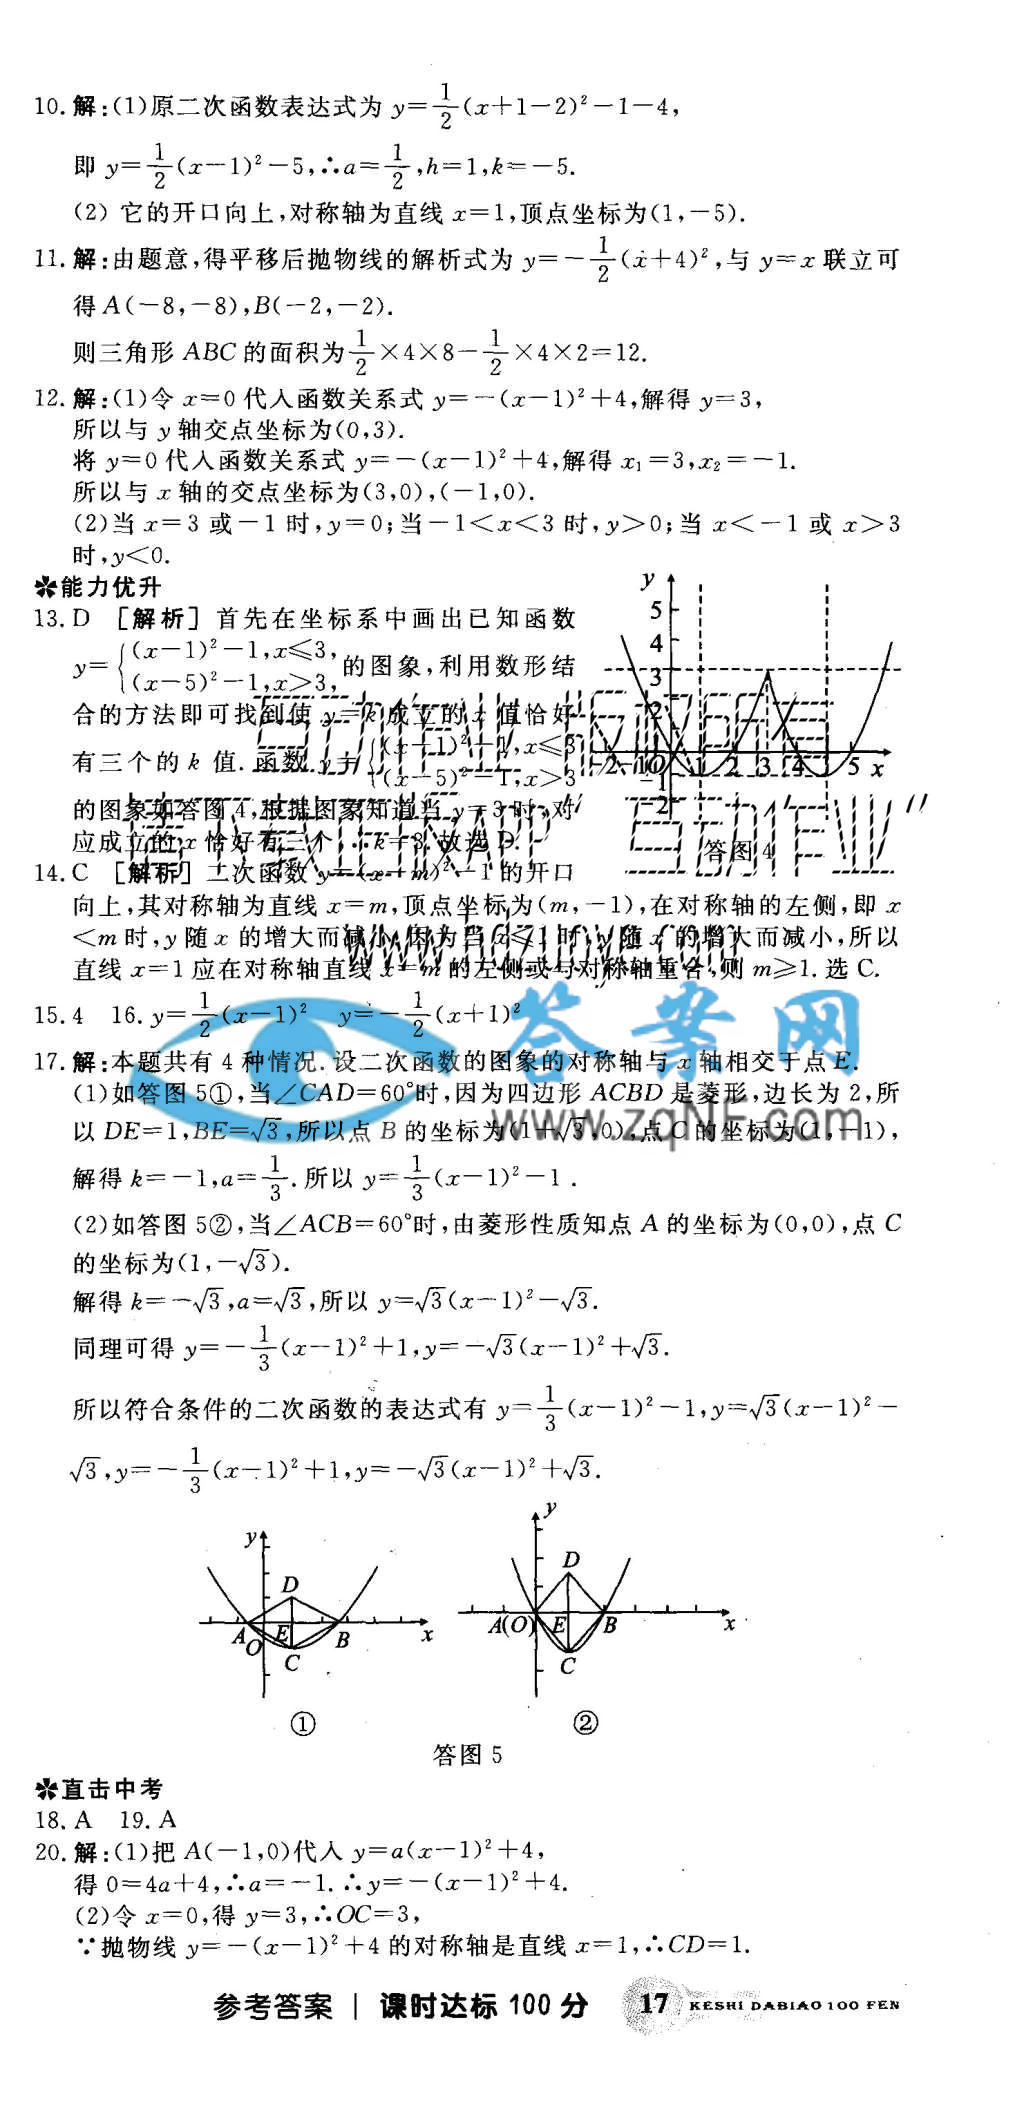 10. 解:(1)原二次函数表达式为 y=1/2(x+1-2)²-1-4,
即 y=1/2(x-1)²-5,∴a=1/2,h=1,k=-5.
(2) 它的开口向上,对称轴为直线 x=1,顶点坐标为(1,-5).
11. 解:由题意,得平移后抛物线的解析式为 y=-1/2(x+4)²,与 y=x 联立可
得 A(-8,-8),B(-2,-2).
则三角形 ABC 的面积为1/2×4×8-1/2×4×2=12.
12. 解:(1)令 x=0 代入函数关系式 y=-(x-1)²+4,解得 y=3,
所以与 y 轴交点坐标为(0,3).
将 y=0 代入函数关系式 y=-(x-1)²+4,解得 x₁=3,x₂=-1.
所以与 x 轴的交点坐标为(3,0),(-1,0).
(2)当 x=3 或-1 时,y=0;当-1<x<3 时,y>0;当 x<-1 或 x>3
时,y<0.
能力优升
13. D [解析] 首先在坐标系中画出已知函数
y={(x-1)²-1,x≤3,
(x-5)²-1,x>3, 的图象,利用数形结
合的方法即可找到使 y=k 成立的 x 值恰好
有三个的 k 值.函数 y={(x-1)²-1,x≤3
(x-5)²-1,x>3
的图象如答图 4,根据图象知道当 y=3 时,对
应成立的 x 恰好有三个,∴k=3.故选 D.
y
5
4
3
2
-2 -1 O 1 2 3 4 5 x
-1
-2
答图 4
14. C [解析] 二次函数 y=(x-m)²-1 的开口
向上,其对称轴为直线 x=m,顶点坐标为(m,-1),在对称轴的左侧,即 x
<m 时,y 随 x 的增大而减小.因为当 x≤1 时,y 随 x 的增大而减小,所以
直线 x=1 应在对称轴直线 x=m 的左侧或与对称轴重合,则 m≥1.选 C.
15. 4 16. y=1/2(x-1)² y=-1/2(x+1)²
17. 解:本题共有 4 种情况.设二次函数的图象的对称轴与 x 轴相交于点 E.
(1)如答图 5①,当∠CAD=60°时,因为四边形 ACBD 是菱形,边长为 2,所
以 DE=1,BE=√3,所以点 B 的坐标为(1+√3,0),点 C 的坐标为(1,-1),
解得 k=-1,a=1/3.所以 y=1/3(x-1)²-1.
(2)如答图 5②,当∠ACB=60°时,由菱形性质知点 A 的坐标为(0,0),点 C
的坐标为(1,-√3).
解得 k=-√3,a=√3,所以 y=√3(x-1)²-√3.
同理可得 y=-1/3(x-1)²+1,y=-√3(x-1)²+√3.
所以符合条件的二次函数的表达式有 y=1/3(x-1)²-1,y=√3(x-1)²-
√3,y=-1/3(x-1)²+1,y=-√3(x-1)²+√3.
答案网
www.zqNF.com
y
D
A O E B x
C
①
y
D
A(O) E B x
C
②
答图 5
直击中考
18. A 19. A
20. 解:(1)把 A(-1,0)代入 y=a(x-1)²+4,
得 0=4a+4,∴a=-1.∴y=-(x-1)²+4.
(2)令 x=0,得 y=3,∴OC=3,
∵抛物线 y=-(x-1)²+4 的对称轴是直线 x=1,∴CD=1.
参考答案 | 课时达标 100 分 17 KESHI DABIAO 100 FEN